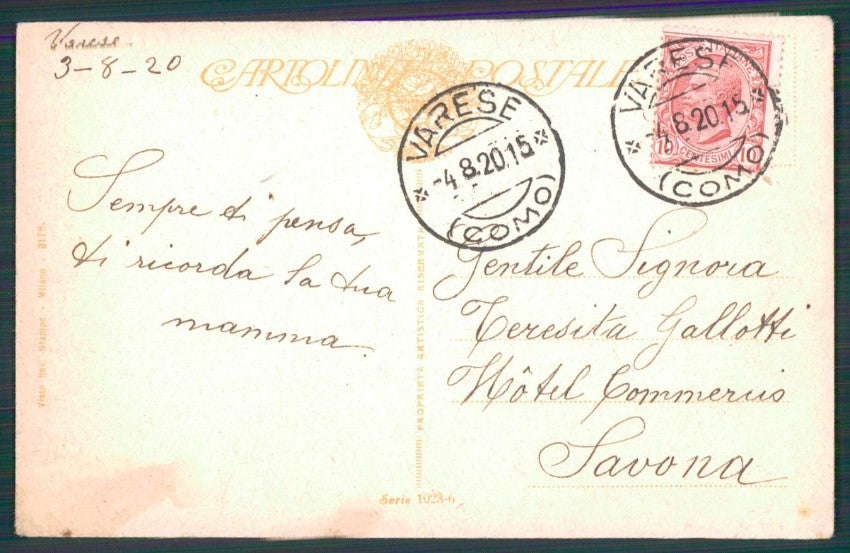 Varese
3-8-20
CARTOLINA POSTALE
VARESE
-4.8.20.15
(COMO)
VARESE
-4.8.20.15
(COMO)
10 CENTESIMI
Sempre ti pensa,
ti ricorda la tua
mamma.
Gentile Signora
Teresita Gallotti
Hôtel Commercis
Savona
PROPRIETÀ ARTISTICA RISERVATA
Visto Rev. Stampa - Milano - 3178.
Serie 1023-6